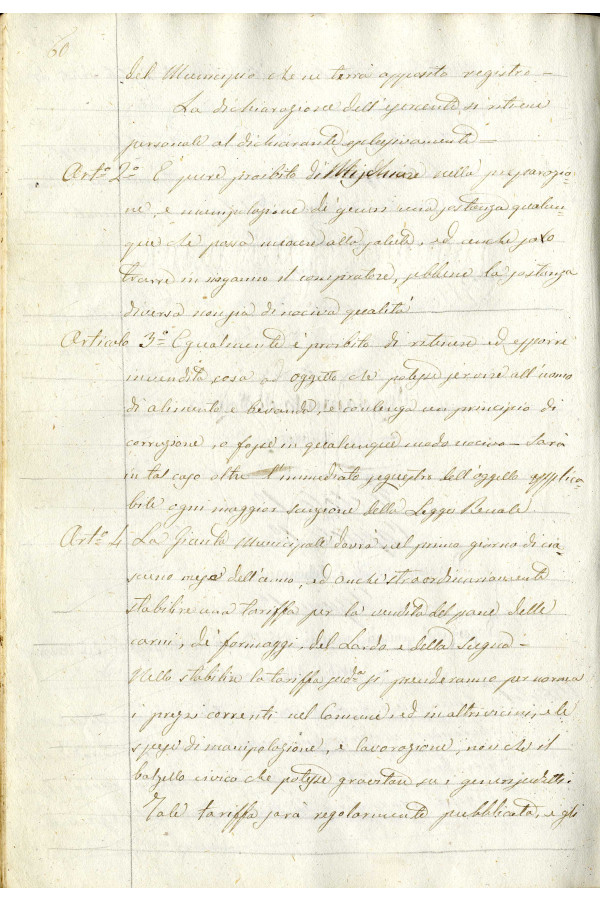 60
del Municipio che ne terrà apposito registro –
La dichiarazione dell'esercente si ritiene
personale al dichiarante esclusivamente –
Art.º 2º È pure proibito di Mischiare nella preparazio-
ne, e manipolazione di generi una sostanza qualun-
que che possa nuocere alla salute, ed anche solo
trarre in inganno il compratore, sebbene la sostanza
diversa non sia di nociva qualità
Articolo 3º Egualmente è proibito di ritenere ed esporre
in vendita cosa od oggetto che potesse servire all'uomo
di alimento e bevanda, e contenga un principio di
corruzione, o fosse in qualunque modo nocivo – Sarà
in tal caso oltre l'immediato sequestro dell'oggetto applica-
bile ogni maggior sanzione della Legge Penale.
Art.º 4 La Giunta Municipale dovrà nel primo giorno di cia-
scuno mese dell'anno, ed anche straordinariamente
stabilire una tariffa per la vendita del pane delle
carni, de' formaggi, del Lardo e della Sugna –
Nello stabilire la tariffa sud.ª si prenderanno per norma
i prezzi correnti nel Comune ed in altri vicini, e le
spese di manipolazione, e lavorazione, non che il
balzello civico che potesse gravitare su i generi sudetti.
Tale tariffa sarà regolarmente pubblicata, e gli